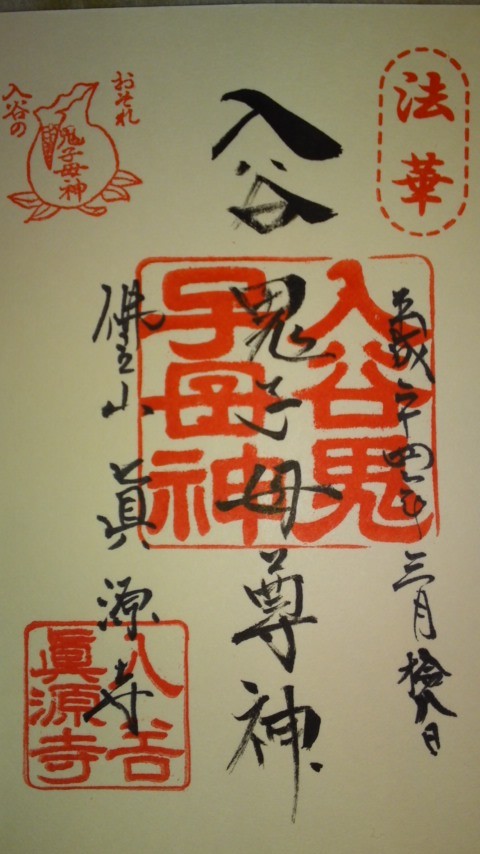 法華
平成二十四年三月拾八日
入谷鬼子母尊神
入谷鬼
子母神
佛立山真源寺
入谷
眞源寺
おそれ
入谷の
鬼子母神